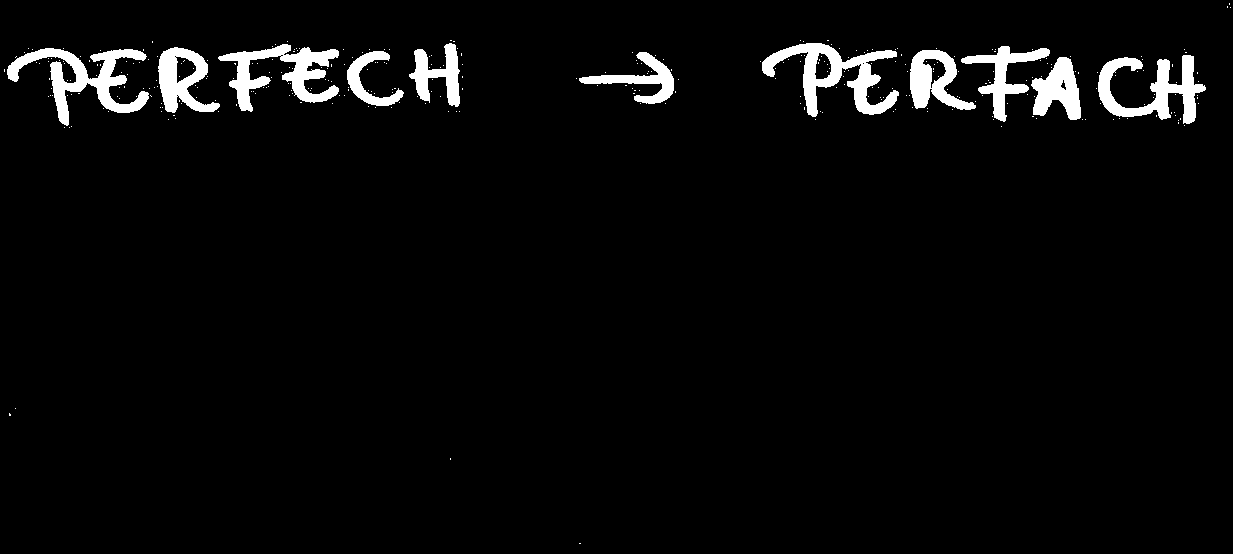 PERFECH → PERFACH